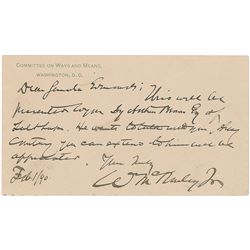 COMMITTEE ON WAYS AND MEANS,
WASHINGTON, D.C.
Dear Senator This will be
presented to you by Arthur Esq of
He wants to you, Any
Courtesy you can extend to him will be
appreciated.
Yours truly
Feb 1/90. W McKinley Jr